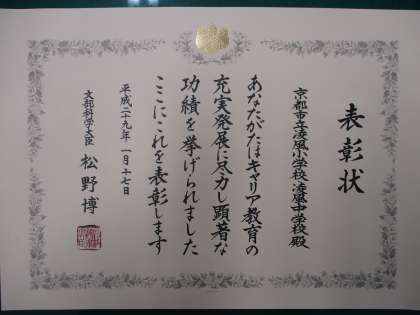 表彰状
京都市立凌風小学校・凌風中学校 殿
あなたがたはキャリア教育の
充実発展に尽力し顕著な
功績を挙げられました
ここにこれを表彰します
平成二十九年一月十七日
文部科学大臣 松野博